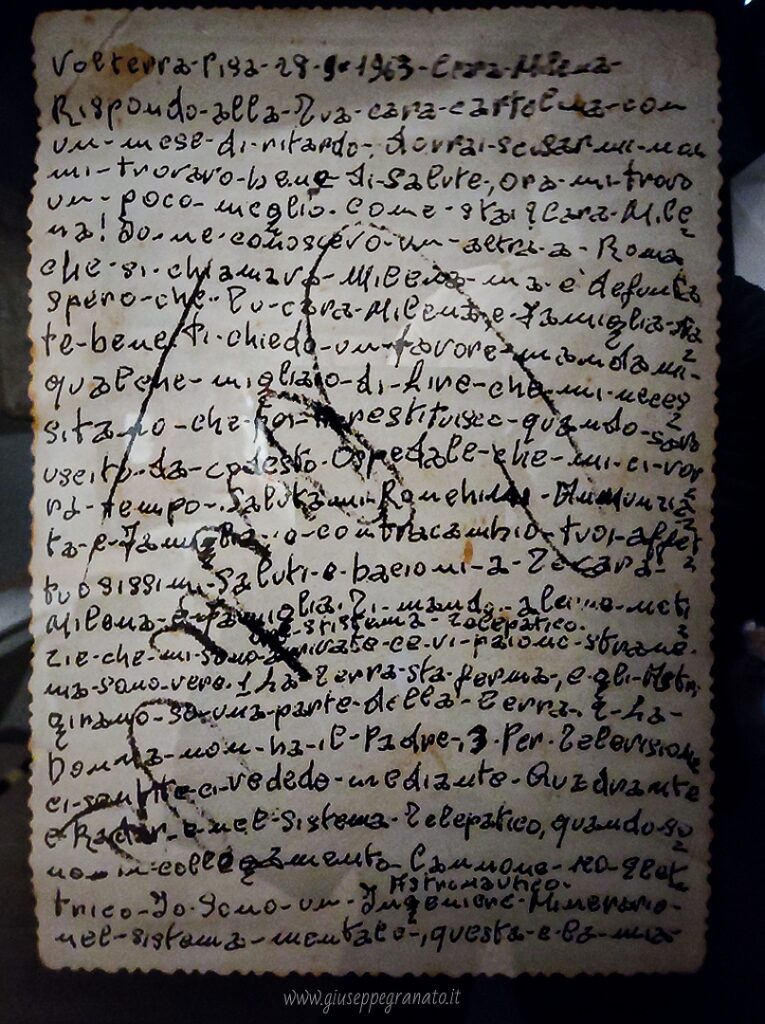 Volterra-Pisa-28-9-1963-Cara-Milena-
Rispondo-alla-Tua-cara-cartolina-con
un-mese-di-ritardo, dovrai-scusarmi-non
mi-trovavo-bene di-salute, ora-mi-trovo
un-poco-meglio. Come-stai? Cara-Mile
na! Io-ne-conoscevo-un-altra-a-Roma
che-si-chiamava-Milena-ma-è defunta
spero-che-Tu-cara-Milena-e-Famiglia-sta
te-bene-Ti-chiedo-un-favore-mandami-
qualche-migliaio-di-Lire-che-mi-neces
sitano-che-poi-restituisco-quando-saro
uscito-da-codesto-Ospedale-che-mi-ci-vor
rà-tempo-Salutami-Annunzia
ta-e-Famiglia-io-contracambio-tuoi-affet
tuosissimi-Saluti-e-bacioni-a-Te cara!
Milena-e-famiglia. Ti-mando-alcune-noti
sistema-Telepatico.
zie-che-mi-sono-arrivate-ce-vi-paiono-strane.
ma-sono-vere. 1 La Terra-sta-ferma, e-gli-Astri
girano-so-una-parte-della-Terra. 2-La-
Donna-non-ha-il-Padre, 3-Per-Televisione
ci-sentite-ci-vedede-mediante-Quadrante
e-Radar-e-nel-sistema-Telepatico, quando-so
no-in-collegamento-Cannone-Elet
Astronautico.
trico-Io-sono-un-Ingeniere-Minerario-
nel-sistema-mentale-, questa-e-la-mia-
www.giuseppegranato.it